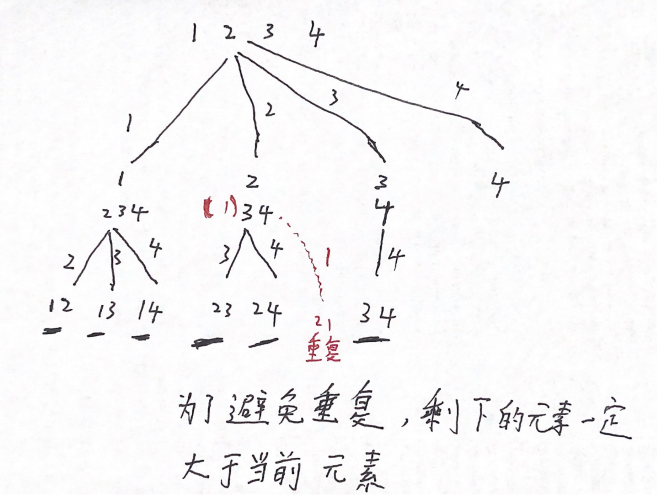 1 2 3 4
1 2 3 4
1 2 3 4
234 (1)34 4
2 3 4 3 4 1 4
12 13 14 23 24 21 34
重复
为了避免重复，剩下的元素一定
大于当前元素